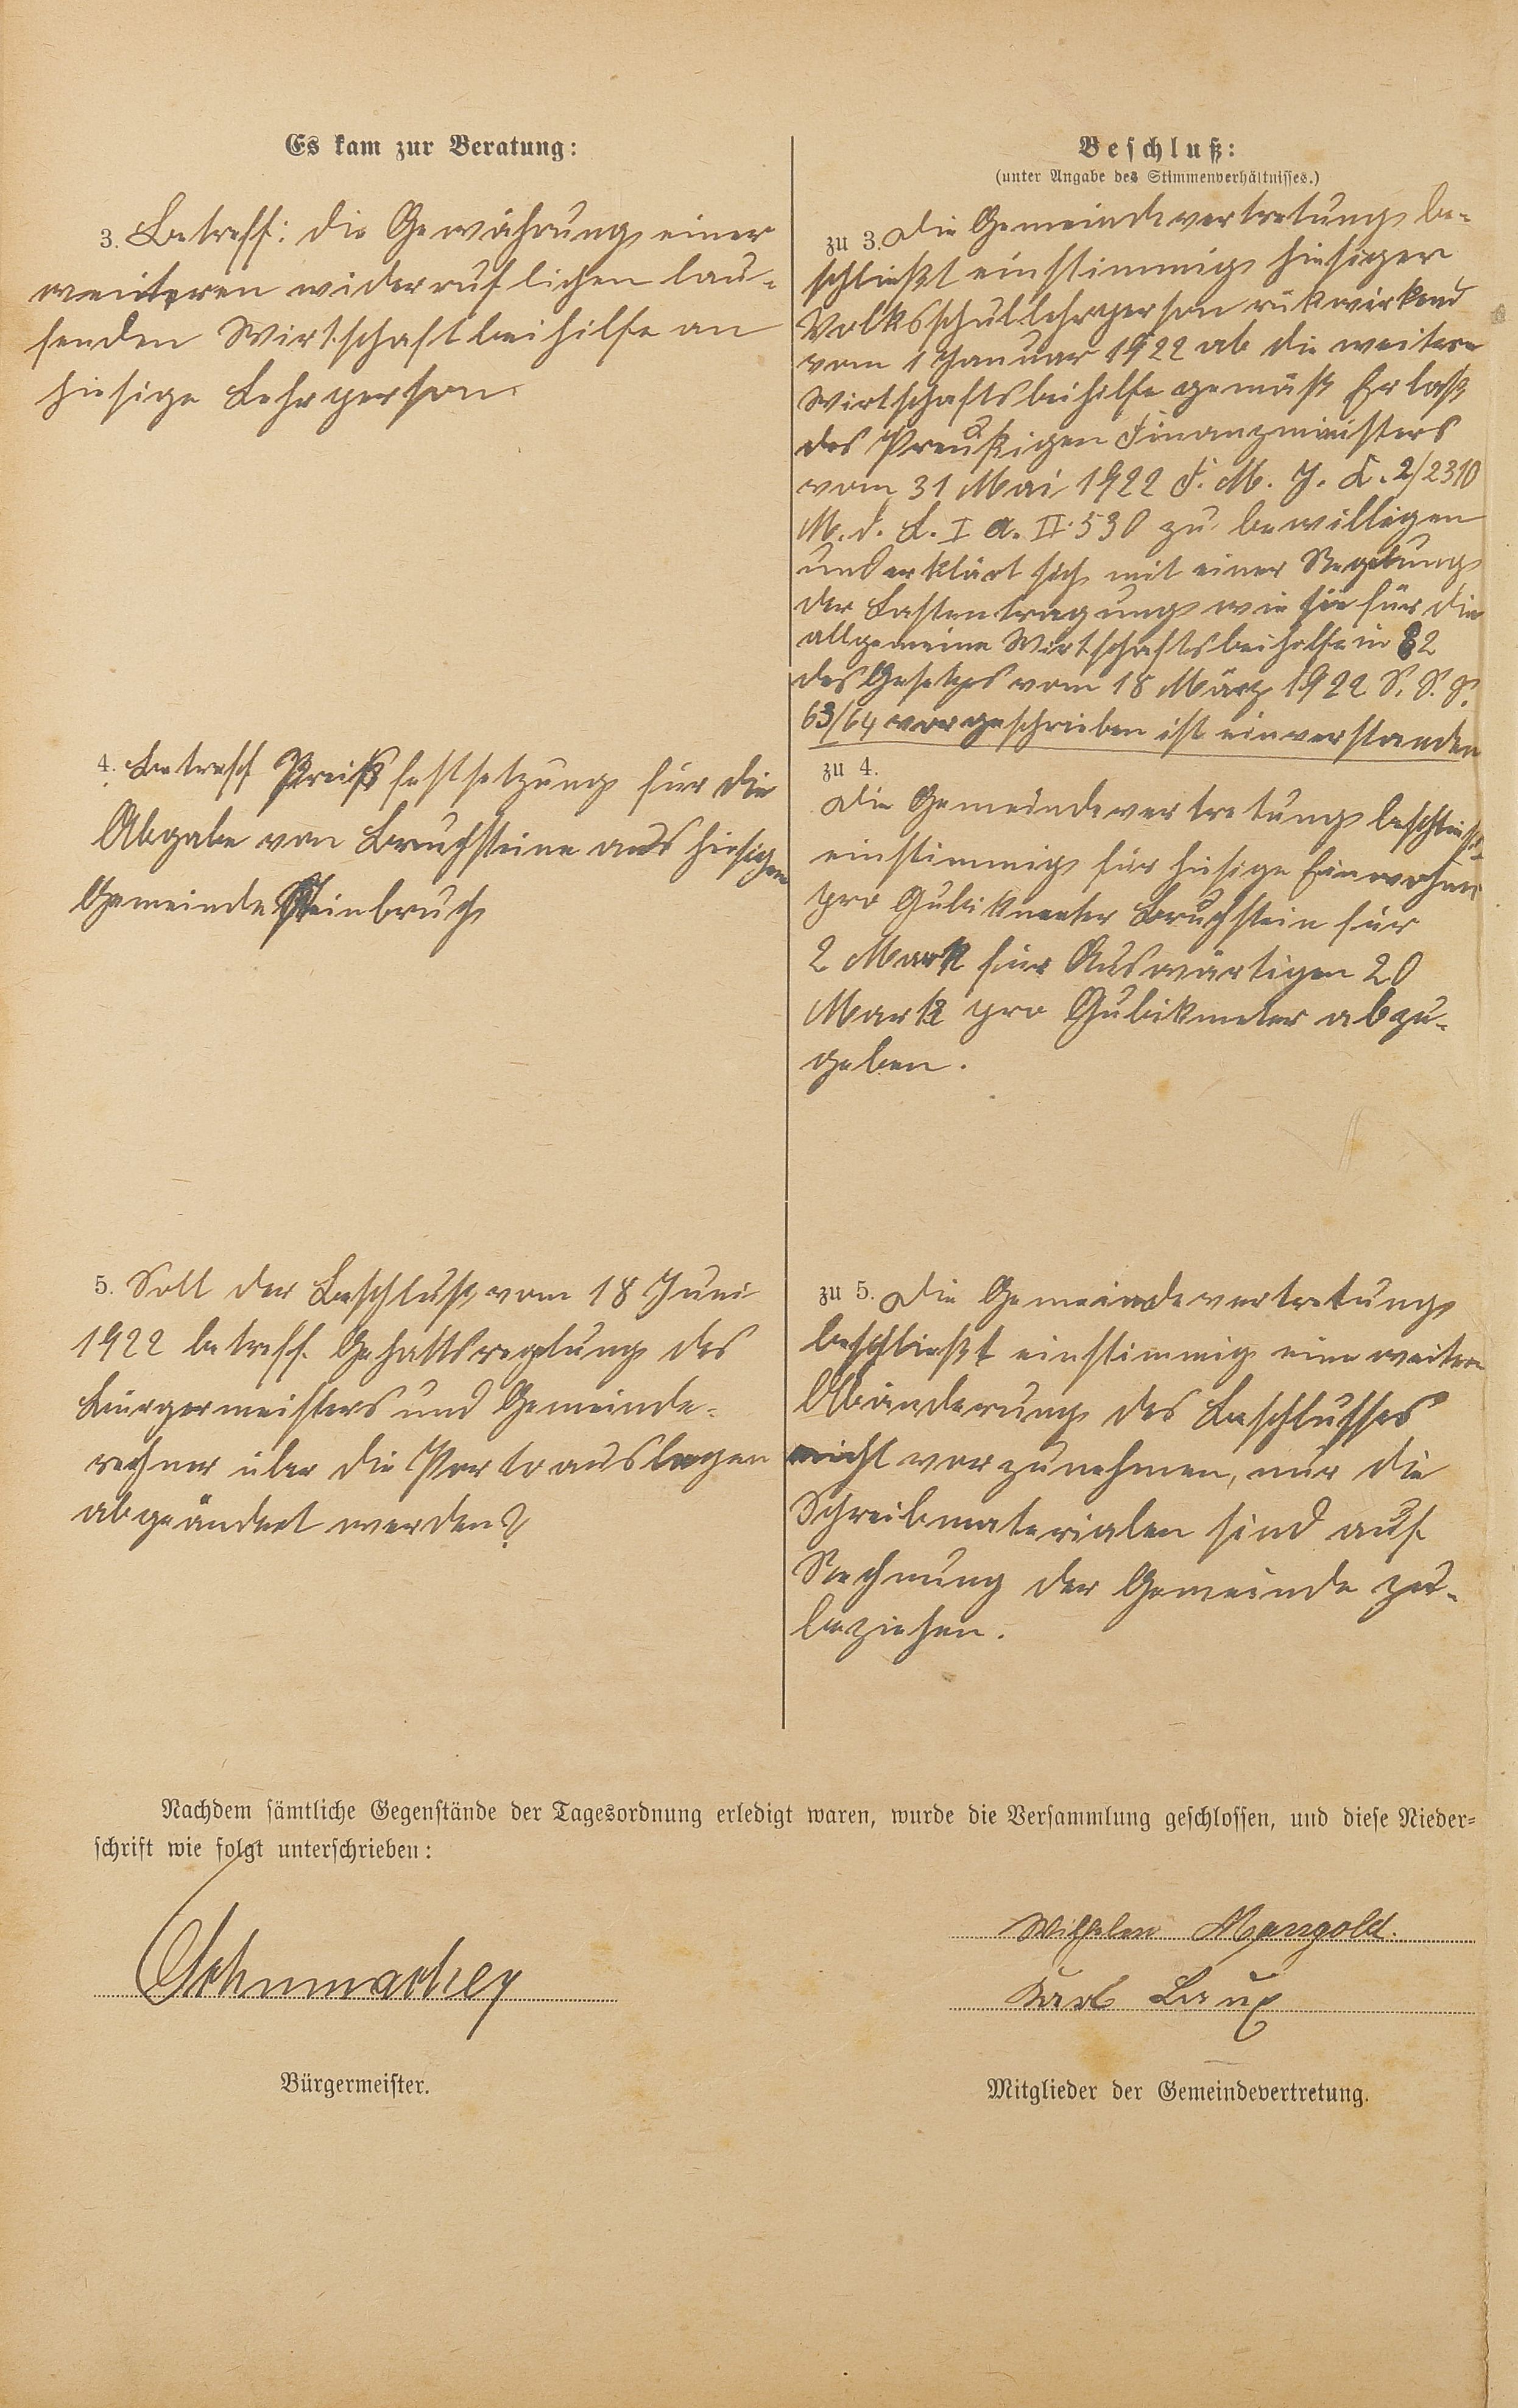 Es kam zur Beratung:
3. Betreff: die Gewährung einer
weiteren widerruflichen lau-
fenden Wirtschaftbeihilfe an
hiesige Lehrperson.
4. Betreff Preißfestsetzung für die
Abgabe von Bruchsteine aus hiesigen
Gemeinde Steinbruch
5. Soll der Beschluß vom 18 Juni
1922 betreff. Gehaltsreglung des
Bürgermeisters und Gemeinde-
rechner über die Portoauslagen
abgeändert werden?
Beschluß:
(unter Angabe des Stimmenverhältnisses.)
zu 3. Die Gemeindevertretung be-
schließt einstimmig hiesiger
Volksschullehrperson rükwirkend
vom 1 Januar 1922 ab die weitere
Wirtschaftsbeihilfe gemäß Erlaß
des Preußigen Finanzministers
vom 31 Mai 1922 F. M. J. L. 2/2310
M. d. L. I a. II. 530 zu bewilligen
und erklärt sich mit einer Regelung
der Lastentragung wie sie für die
allgemeine Wirtschaftsbeihilfe in § 2
des Gesetzes vom 18 März 1922 S. S. S.
63/64 vorgeschrieben ist einverstanden
zu 4.
Die Gemeindevertretung beschließt
einstimmig für hiesige Einwohner
pro Qubikmeter Bruchstein für
2 Mark für Auswärtigen 20
Mark pro Qubikmeter abzu-
geben.
zu 5. Die Gemeindevertretung
beschließt einstimmig eine weitere
Abänderung des Beschlusses
nicht vorzunehmen, nur die
Schreibmaterialen sind auf
Rechnung der Gemeinde zu-
beziehen.
Nachdem sämtliche Gegenstände der Tagesordnung erledigt waren, wurde die Versammlung geschlossen, und diese Nieder-
schrift wie folgt unterschrieben:
Schumacher
Bürgermeister.
Wilhelm Mangold.
Karl Laux
Mitglieder der Gemeindevertretung.